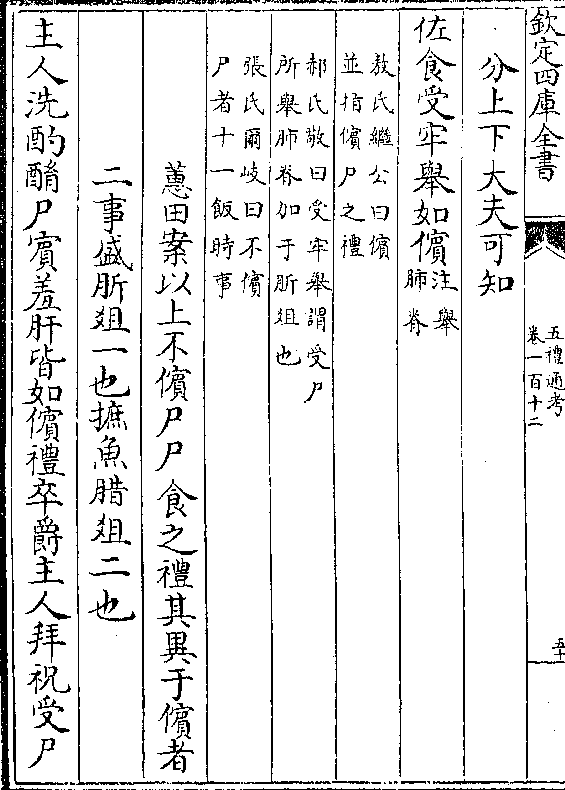 欽定四庫全書
五禮通考
卷一百十二
五十
分上下大夫可知
佐食受牢舉如儐注舉
肺脊
敖氏繼公曰儐
並指儐尸之禮
郝氏敬曰受牢舉謂受尸
所舉肺脊加于肵俎也
張氏爾岐曰不儐
尸者十一飯時事
蕙田案以上不儐尸尸食之禮其異于儐者
二事盛肵俎一也摭魚腊俎二也
主人洗酌酳尸賓羞肝皆如儐禮卒爵主人拜祝受尸